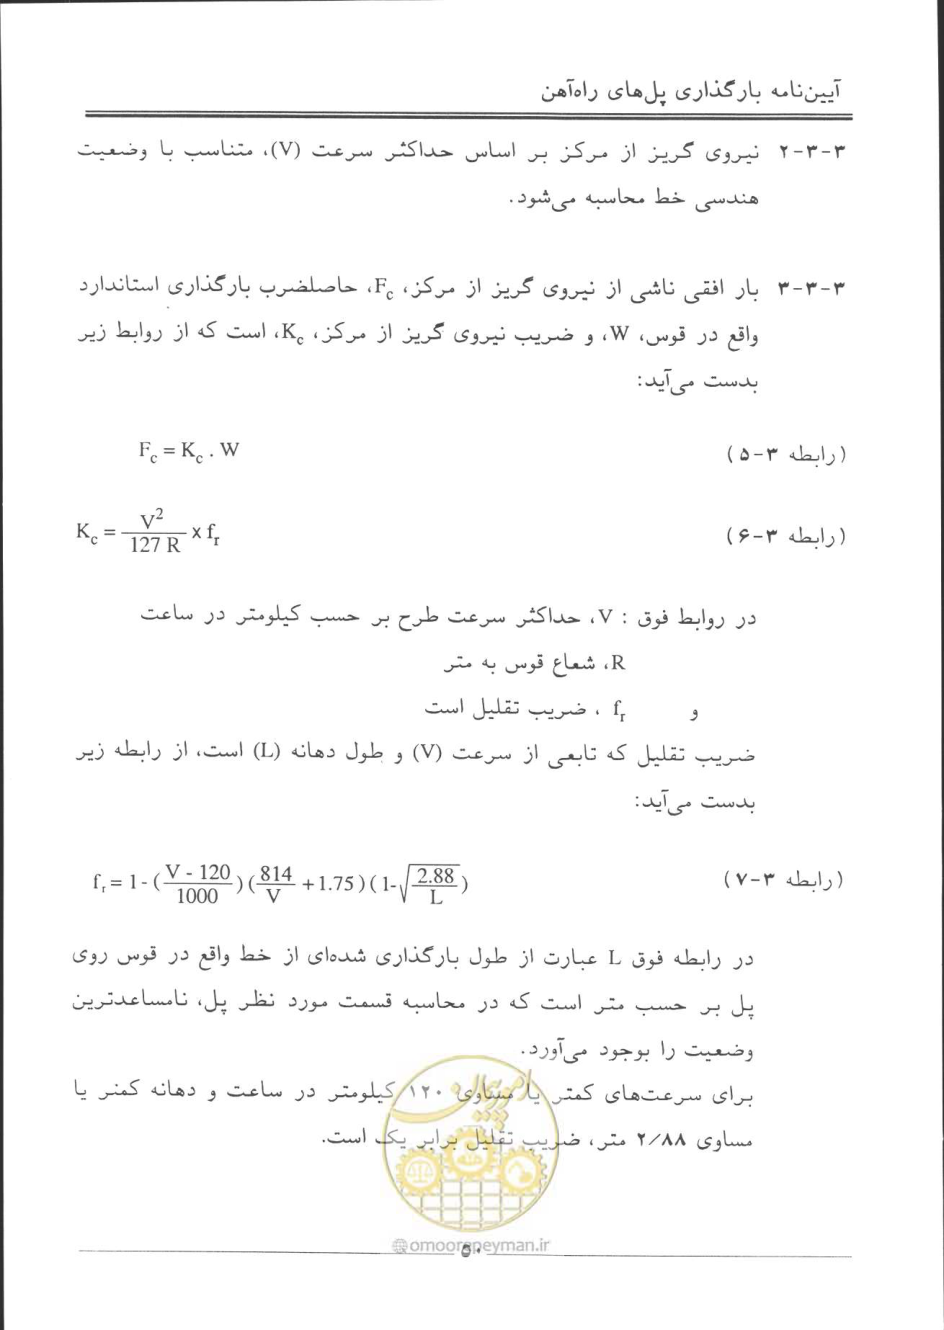 آیین‌نامه بارگذاری پل‌های راه‌آهن
۳-۳-۲ نیروی گریز از مرکز بر اساس حداکثر سرعت (V)، متناسب با وضعیت
هندسی خط محاسبه می‌شود.
۳-۳-۳ بار افقی ناشی از نیروی گریز از مرکز، F_c، حاصلضرب بارگذاری استاندارد
واقع در قوس، W، و ضریب نیروی گریز از مرکز، K_c، است که از روابط زیر
بدست می‌آید:
(رابطه ۳-۵) F_c = K_c . W
(رابطه ۳-۶) K_c = V² / 127 R x f_r
در روابط فوق : V، حداکثر سرعت طرح بر حسب کیلومتر در ساعت
R، شعاع قوس به متر
و f_r ، ضریب تقلیل است
ضریب تقلیل که تابعی از سرعت (V) و طول دهانه (L) است، از رابطه زیر
بدست می‌آید:
(رابطه ۳-۷) f_r = 1 - (V - 120 / 1000) (814 / V + 1.75) (1-√(2.88 / L))
در رابطه فوق L عبارت از طول بارگذاری شده‌ای از خط واقع در قوس روی
پل بر حسب متر است که در محاسبه قسمت مورد نظر پل، نامساعدترین
وضعیت را بوجود می‌آورد.
برای سرعت‌های کمتر یا مساوی ۱۲۰ کیلومتر در ساعت و دهانه کمتر یا
مساوی ۲/۸۸ متر، ضریب تقلیل برابر یک است.
امور پیمان
@omoorepeyman.ir
۵۰